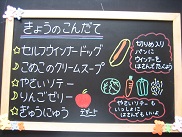 きょうのこんだて
☆セルフウィンナードッグ
☆こめこのクリームスープ
☆やさいソテー
☆りんごゼリー
☆ぎゅうにゅう
デザート
切りめ入り
パンに
ウィンナーを
はさんでたべよう
やさいソテーも
いっしょに
はさんでもいいよ